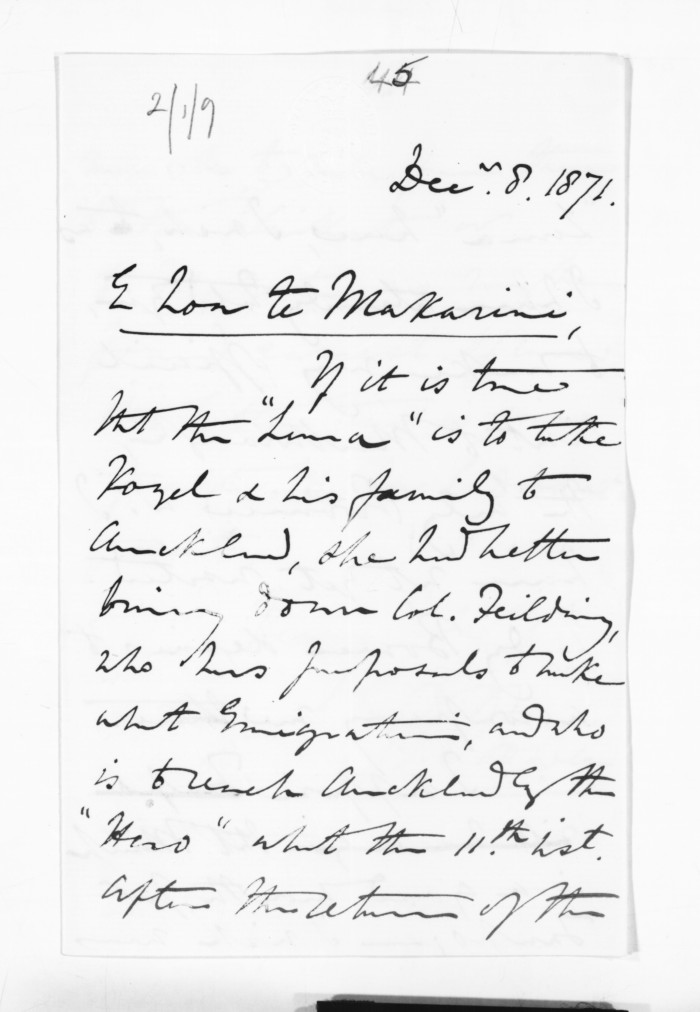 45
2/1/9
Decr. 8. 1871.
E hoa te Makarini,
If it is true
that the "Luna" is to take
Vogel & his family to
Auckland, she had better
bring down Col. Feilding,
who has proposals to make
about Emigration, and who
is to reach Auckland by the
"Hero" about the 11th. inst.
After the return of the